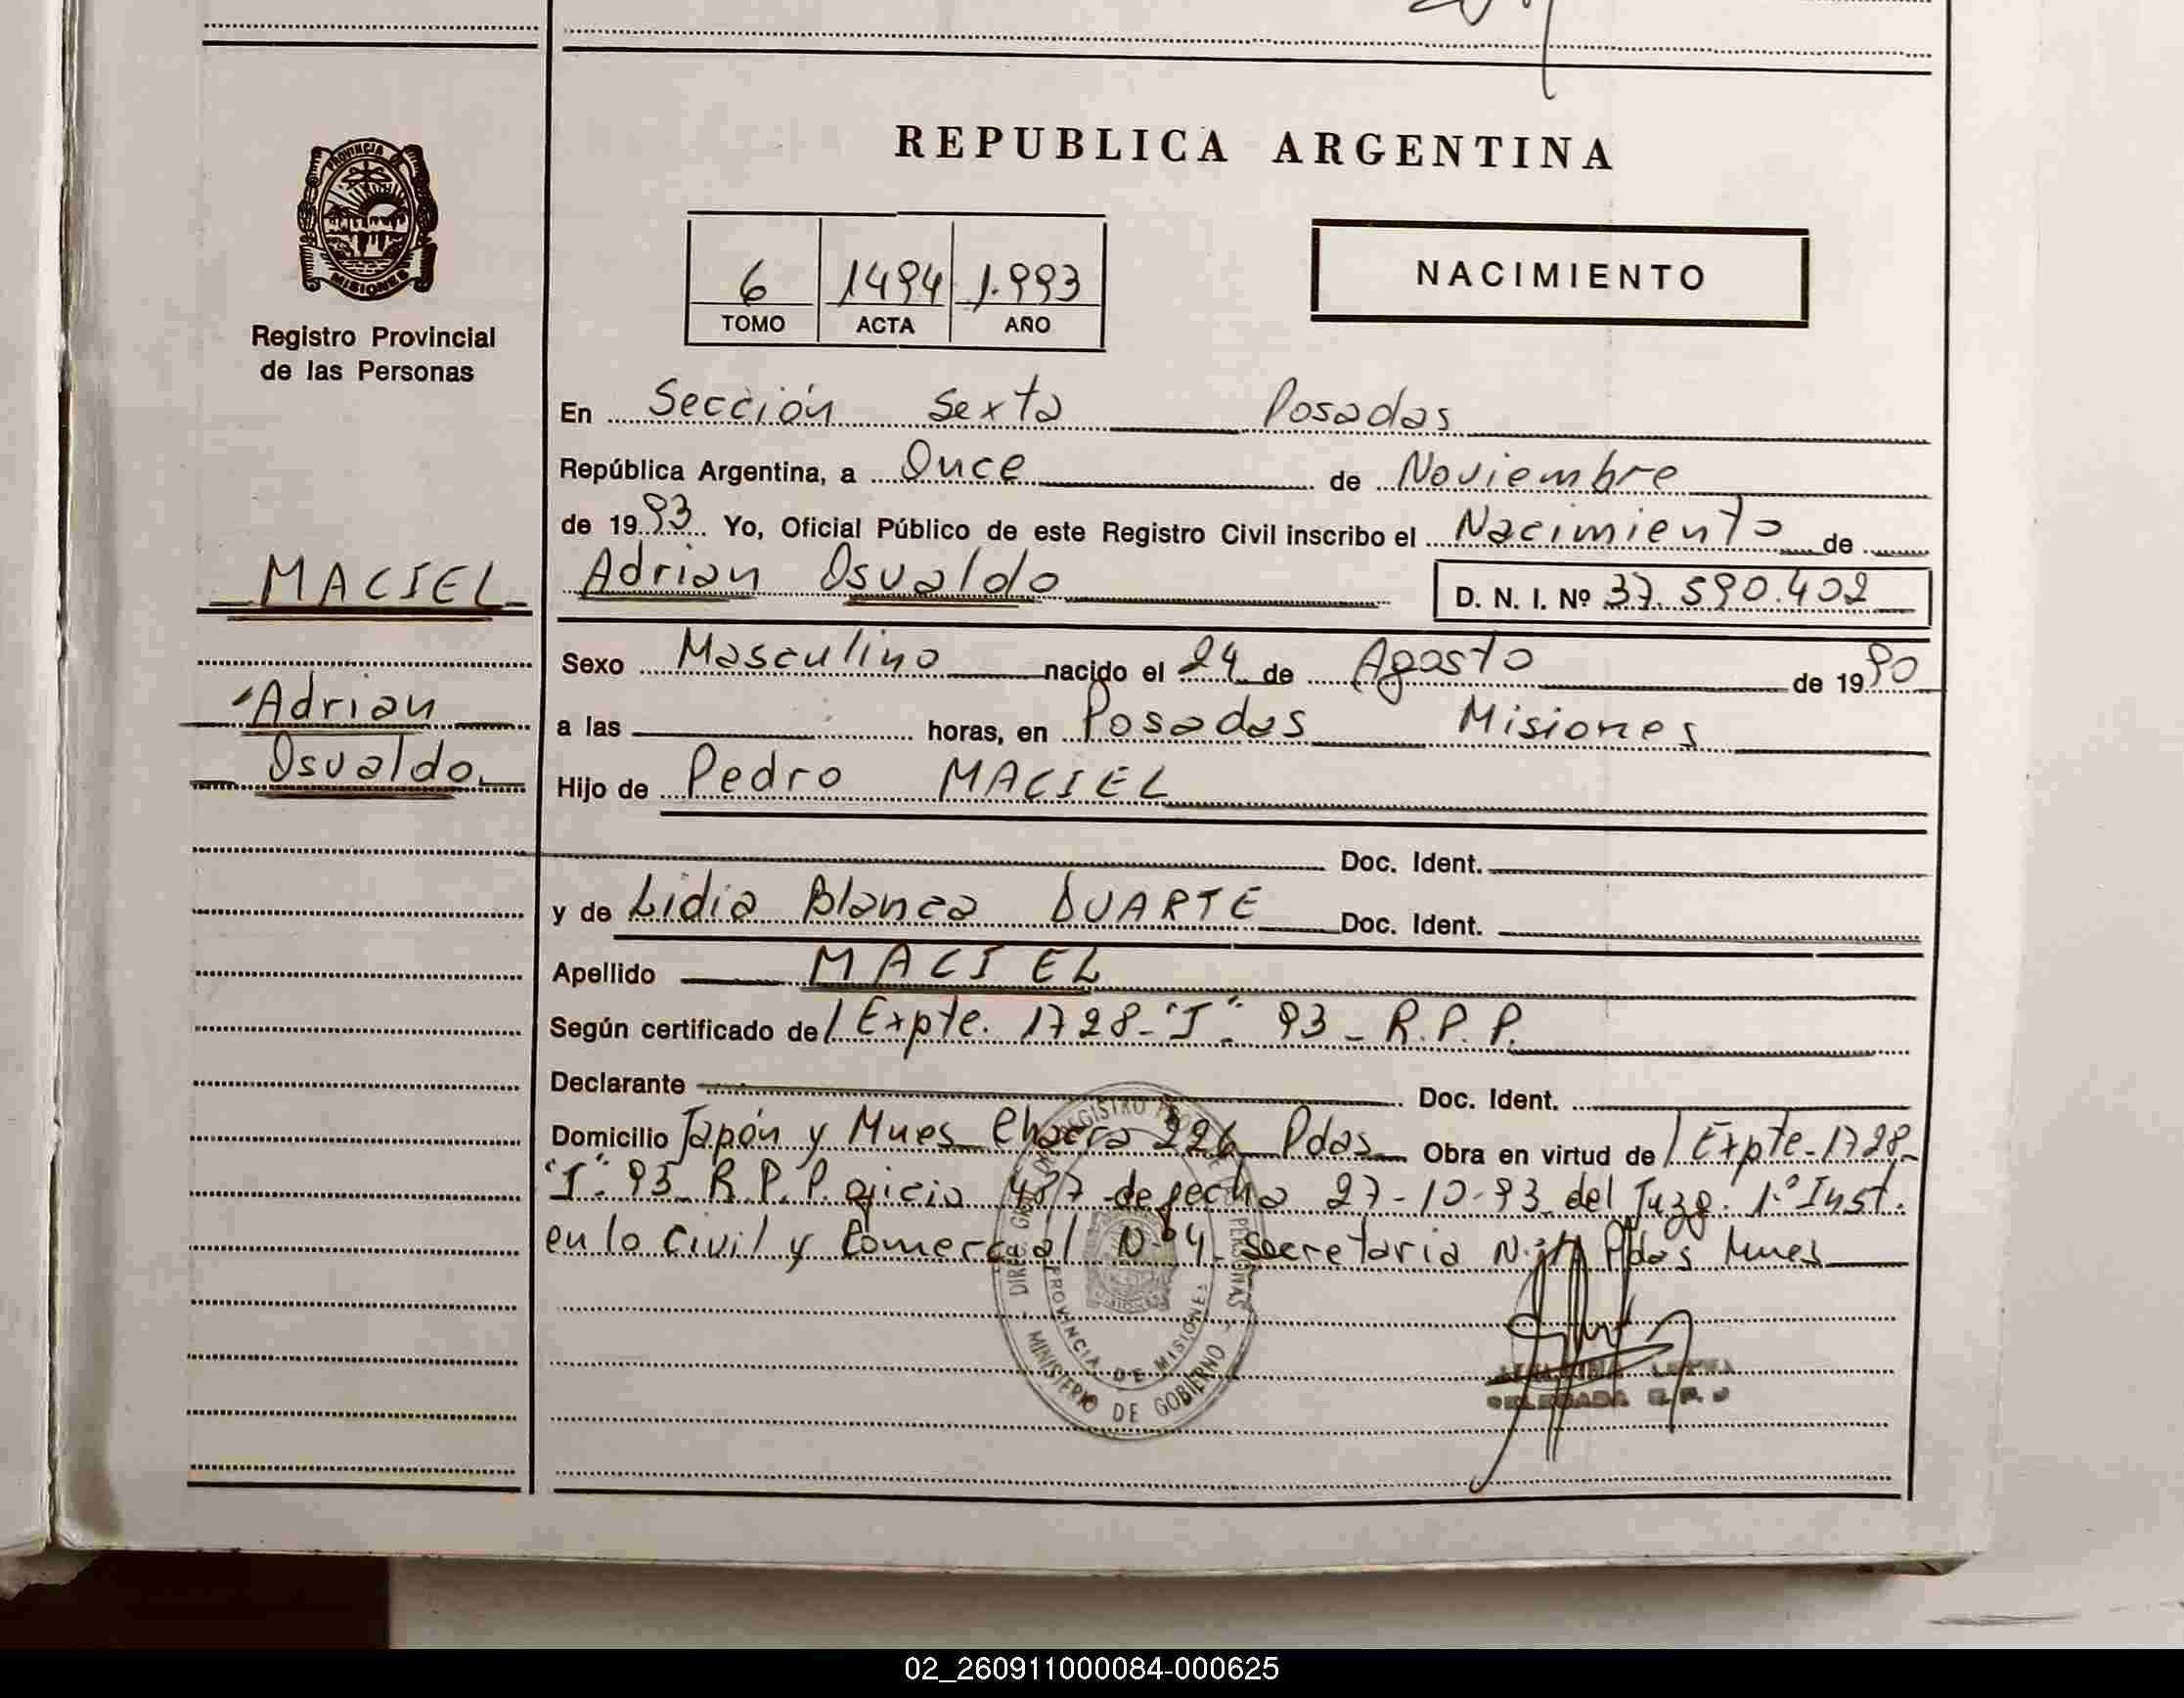 REPUBLICA ARGENTINA
PROVINCIA DE
MISIONES
Registro Provincial
de las Personas
6 1494 1.993
TOMO ACTA AÑO
NACIMIENTO
En Sección Sexta Posadas
República Argentina, a Once de Noviembre
de 1993 Yo, Oficial Público de este Registro Civil inscribo el Nacimiento de
MACIEL
Adrian Osvaldo D. N. I. Nº 37.590.402
Sexo Masculino nacido el 24 de Agosto de 1990
Adrian
Osvaldo
a las horas, en Posadas Misiones
Hijo de Pedro MACIEL
Doc. Ident.
y de Lidia Blanca DUARTE Doc. Ident.
Apellido MACIEL
Según certificado de / Expte. 1728-"I" 93 - R.P.P.
Declarante Doc. Ident.
Domicilio Japón y Mnes Chacra 226 Pdas Obra en virtud de / Expte-1728-
"I" 93 R.P.P. oficio 487 de fecha 27-10-93 del Juzg. 1º Inst.
en lo Civil y Comercial Nº 4 Secretaria Pdas Mnes
REGISTRO PROV. DE PERSONAS
PROVINCIA DE MISIONES
MINISTERIO DE GOBIERNO
DELEGADA
02_260911000084-000625